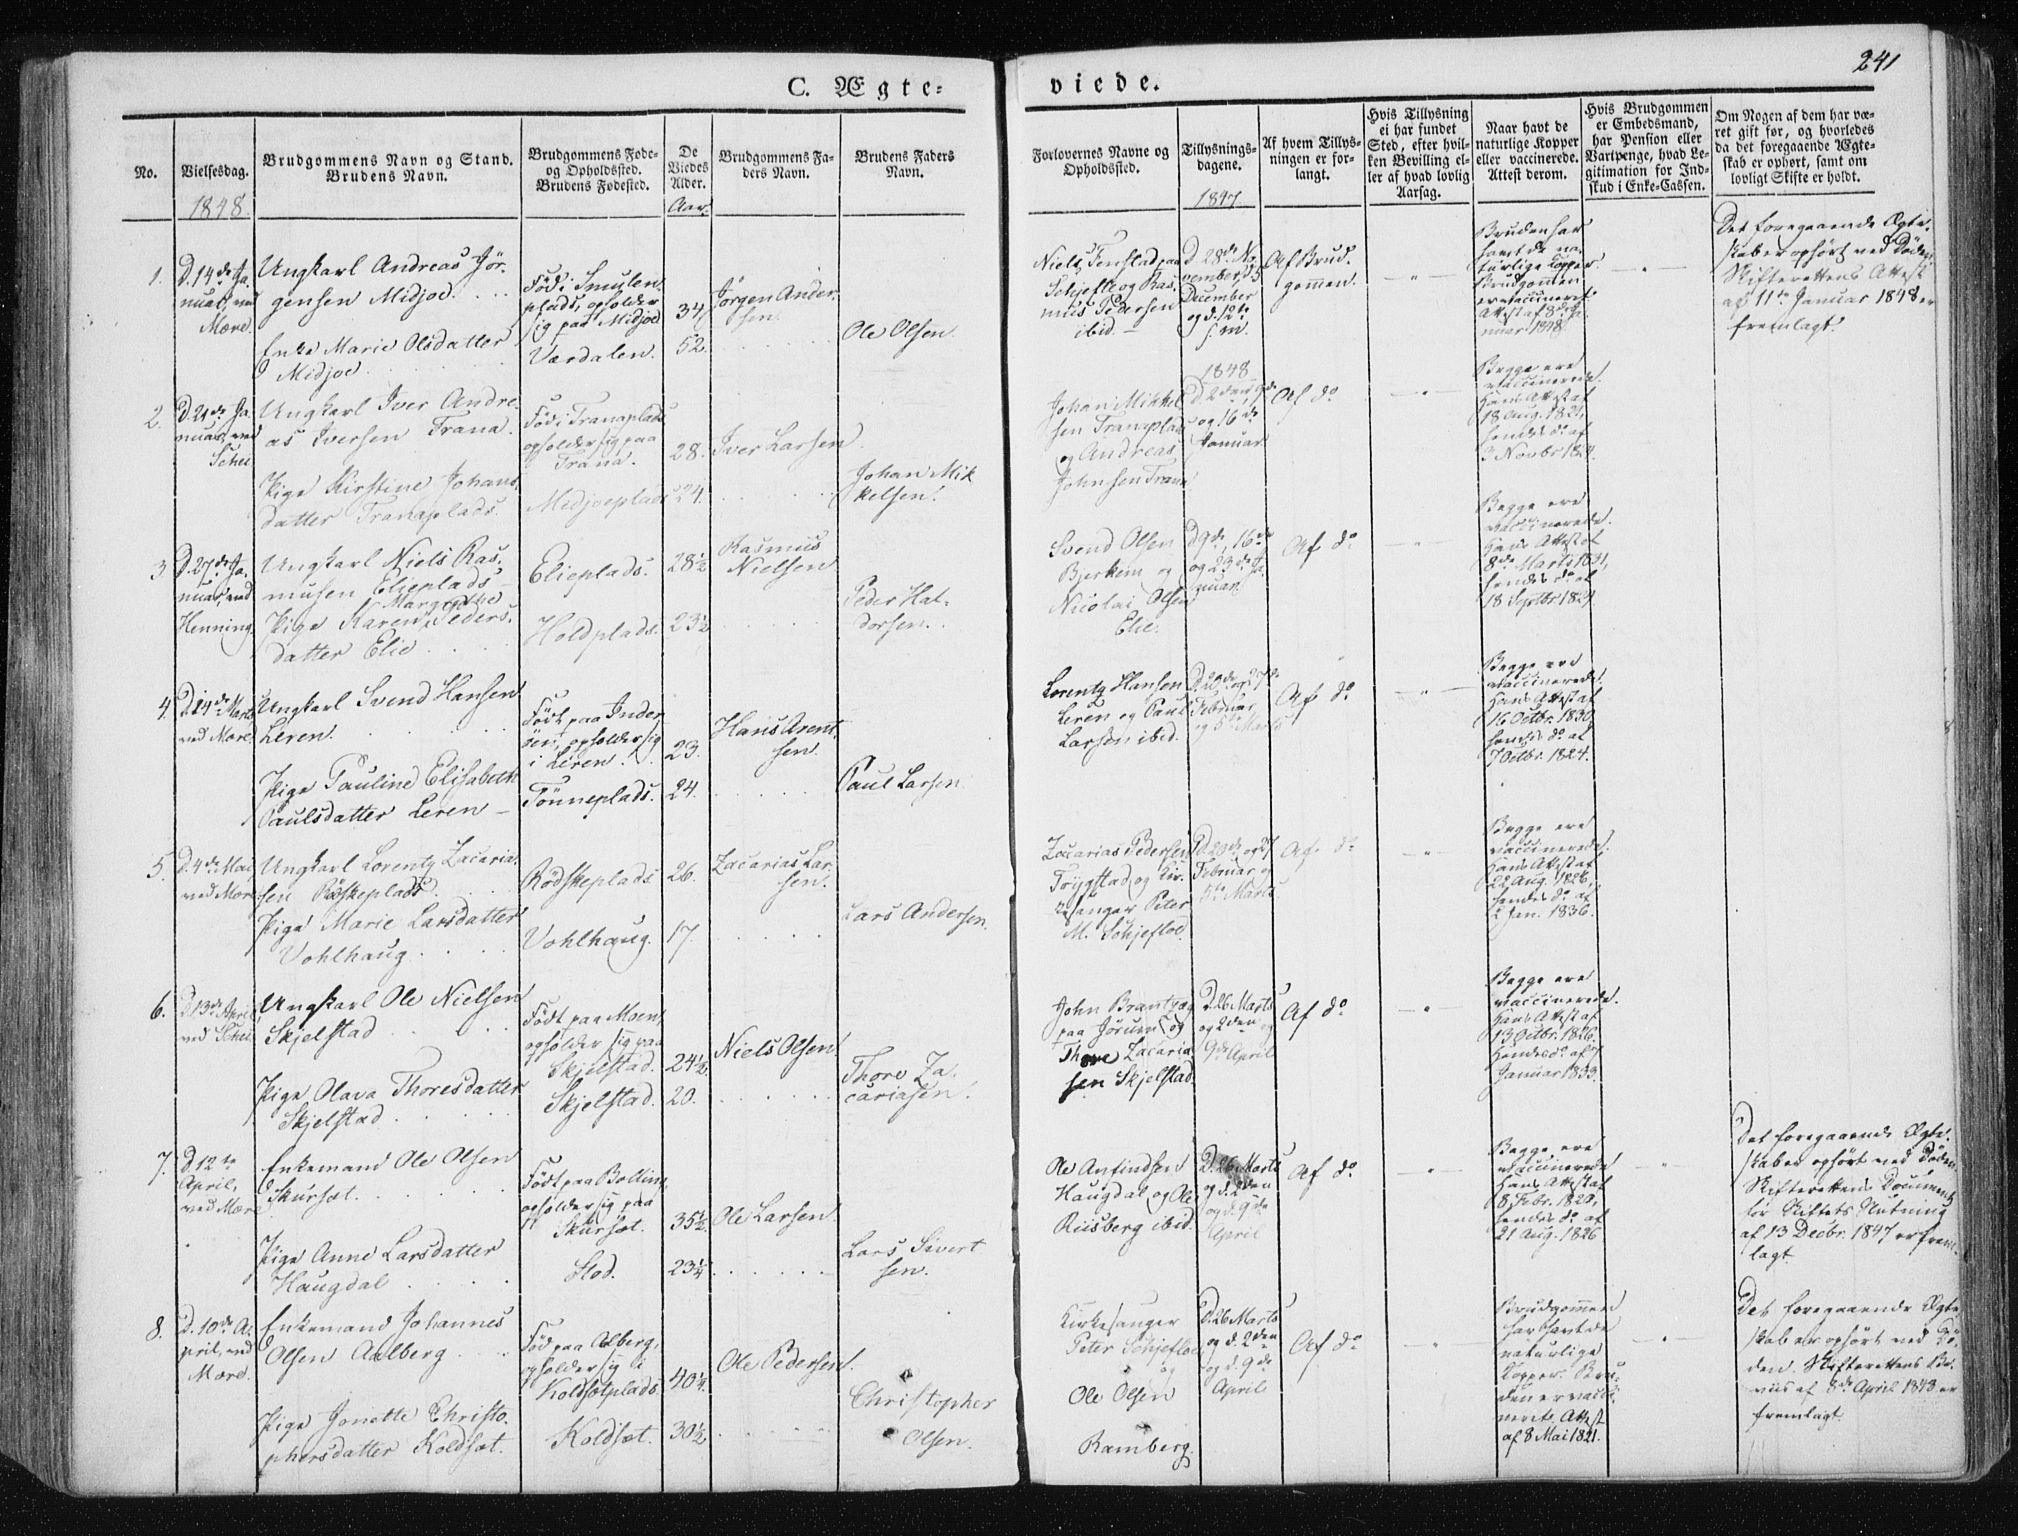 241
C. Ægte-
viede.
No.
Vielsesdag.
Brudgommens Navn og Stand.
Brudens Navn.
Brudgommens Føde-
og Opholdssted.
Brudens Fødested.
De
Viedes
Alder.
Brudgommens Fa-
ders Navn.
Brudens Faders
Navn.
Forlovernes Navne og
Opholdssted.
Tillysnings-
dagene.
Af hvem Tillys-
ningen er for-
langt.
Hvis Tillysning
ei har fundet
Sted, efter hvil-
ken Bevilling el-
ler af hvad lovlig
Aarsag.
Naar havt de
naturlige Kopper
eller vaccinerede.
Attest derom.
Hvis Brudgommen
er Embedsmand,
har Pension eller
Vartpenge, hvad Le-
gitimation for Ind-
skud i Enke-Cassen.
Om Nogen af dem har væ-
ret gift før, og hvorledes
da det foregaaende Ægte-
skab er ophørt, samt om
lovligt Skifte er holdt.
1848.
Aar.
1847
1.
D. 14de Ja-
nuar, ved
Mære.
Ungkarl Andreas Jør-
gensen Midjoe.
Enke Marie Olsdatter
Midjoe
Fød i Smulen-
plads, opholder
sig paa Midjoe
Værdalen.
34
52.
Jørgen Ander-
sen.
Ole Olsen.
Niels Fenstad paa
Schjefte og Ras-
mus Pedersen
ibid.
D. 28de No-
vember, d. 5
December
og d. 12te
s. m.
Af Brud-
gommen.
Bruden har
havt de na-
turlige Kopper.
Brudgommen
er vaccineret.
Attest af 8de Ja-
nuar 1848.
Det foregaaende Ægte-
skab er ophørt ved Døden.
Skifterettens Attest
af 11te Januar 1848 er
fremlagt.
2.
D. 21de Ja-
nuar, ved
Schei
Ungkarl Iver Andre-
as Iversen Trana.
Pige Kirstine Johans-
datter Tranaplads.
Fød i Tranaplads
opholder sig paa
Trana.
Midjoeplads
28.
24.
Iver Larsen
Johan Mik
kelsen.
Johan Mikkel-
sen Tranaplads
og Andreas
Johnsen Trana
1848
D. 2den, 9de
og 16de
Januar
Af do
Begge ere
vaccinerede.
Hans Attest af
18 Aug. 1821,
hendes do af
3 Novbr 1824.
3
D. 27de Ja-
nuar, ved
Henning
Ungkarl Niels Ras-
musen Elieplads
Margrethe
Pige Karen Peders-
datter Elie
Elieplads.
Holdplads.
28½
23½
Rasmus
Nielsen
Peder Hal-
dorsen.
Svend Olsen
Bjerkem og
Nicolai Olsen
Elie.
D 9de, 16de
og 23de Ja-
nuar.
Af do
Begge ere
vaccinerede.
Hans Attest af
8de Marts 1831,
hendes do af
18 Septbr 1824
4.
D. 24de Marts
ved Mære
Ungkarl Svend Hansen
Leren.
Pige Pauline Elisabeth
Paulsdatter Leren
Født paa Inder-
øen, opholder sig
i Leren.
Tønneplads.
23.
24.
Hans Arent-
sen.
Paul Larsen
Lorentz Hansen
Leren og Paul
Larsen ibid.
D. 20de og 27de
Februar
og 5te Marts
Af do
Begge ere
vaccinerede.
Hans Attest af
16 Octbr. 1830
hendes do af
7 Octbr. 1824.
5.
D. 4de Mai
ved Mære
Ungkarl Lorentz Zacaria-
sen Rødskeplads.
Pige Marie Larsdatter
Vohlhaug
Rødskeplads.
Vohlhaug.
26.
17.
Zacarias Lar-
sen.
Lars Andersen.
Zacarias Pedersen
Trygstad og Kir-
kesanger Peter
M. Schjeflod.
D. 20de og 27
Februar og
5te Marts
Af do
Begge ere
vaccinerede.
Hans Attest af
22 Aug. 1826,
hendes do af
2 Jan. 1836.
6.
D. 13de April
ved Schei
Ungkarl Ole Nielsen
Skjelstad
Pige Olava Thoresdatter
Skjelstad
Født paa Moen,
opholder sig paa
Skjelstad.
Skjelstad.
24½
20.
Niels Olsen
Thore Za-
cariasen.
John Brantzæg
paa Jørum og
Thore Zacaria-
sen Skjelstad.
D. 26 Marts
og 2den og
9de April
Af do
Begge ere
vaccinerede.
Hans Attest af
13 Octbr. 1826.
Hendes do af 7
Januar 1833.
7.
D 12te
April,
ved Mære
Enkemand Ole Olsen
Skursæt.
Pige Anne Larsdatter
Haugdal
Født paa Bolling,
opholder sig paa
Skursæt.
Stod.
35½
23¼
Ole Larsen.
Lars Sivert
sen.
Ole Anfindsen
Haugdal og Ole
Riisberg ibid.
D. 26 Marts
og d. 2den
og d. 9de
April
Af do
Begge ere
vaccinerede
Hans Attest af
8 Febr. 1820,
hendes do af
21 Aug. 1826
Det foregaaende Ægte-
skab er ophørt ved Døden.
Skifterettens Document
for Skiftets Slutning
af 13 Decbr. 1847 er frem-
lagt.
8.
D. 10de A-
pril, ved
Mære.
Enkemand Johannes
Olsen Aalberg
Pige Jonette Christo-
phersdatter Koldsæt.
Fød paa Aalberg,
opholder sig i
Koldsætplads
Koldsæt.
40¼
30½
Ole Pedersen.
Christopher
Olsen.
Kirkesanger
Peter Schjeflo
og
Ole Olsen
Ramberg.
D. 26 Marts
og d. 2den
og d. 9de
April
Af do
Brudgommen
har havt de
naturlige
Kopper. Bru-
den er vacci-
neret. Attest
af 8 Mai 1821.
Det foregaaende Ægte
skab er ophørt ved Dø-
den. Skifterettens Be-
viis af 8de April 1848 er
fremlagt.